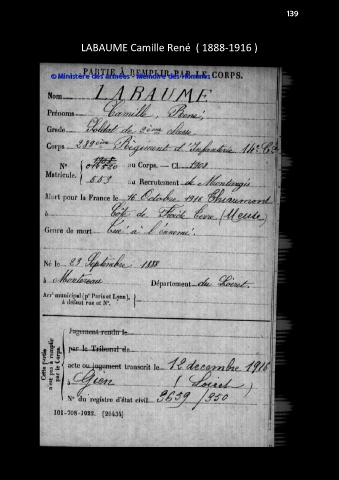 139
LABAUME Camille René ( 1888-1916 )
PARTIE À REMPLIR PAR LE CORPS.
© Ministère des armées - Mémoire des hommes
Nom LABAUME
Prénoms Camille, René
Grade Soldat de 2ème classe
Corps 289ème Régiment d'Infanterie 14e Cie
N° au Corps. — Cl. 1908
Matricule. 553 au Recrutement de Montargis
Mort pour la France le 16 Octobre 1916
à Côte de Froide Terre (Meuse)
Genre de mort tué à l'ennemi
Né le 23 Septembre 1888
à Montereau Département du Loiret
Arr' municipal (p' Paris et Lyon),
à défaut rue et N°.
Cette partie n'est pas à remplir par le Corps.
Jugement rendu le
par le Tribunal de
acte ou jugement transcrit le 12 décembre 1916
à Gien (Loiret)
N° du registre d'état civil 3659/350
101-708-1922. [26434]